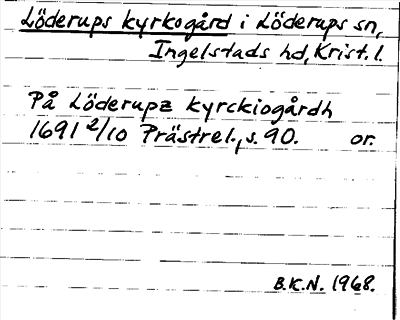 Löderups kyrkogård i Löderups sn,
Ingelstads hd, Krist. l.
På Löderupz kyrckiogårdh
1691 2/10 Prästrel., s. 90. or.
B.K.N. 1968.